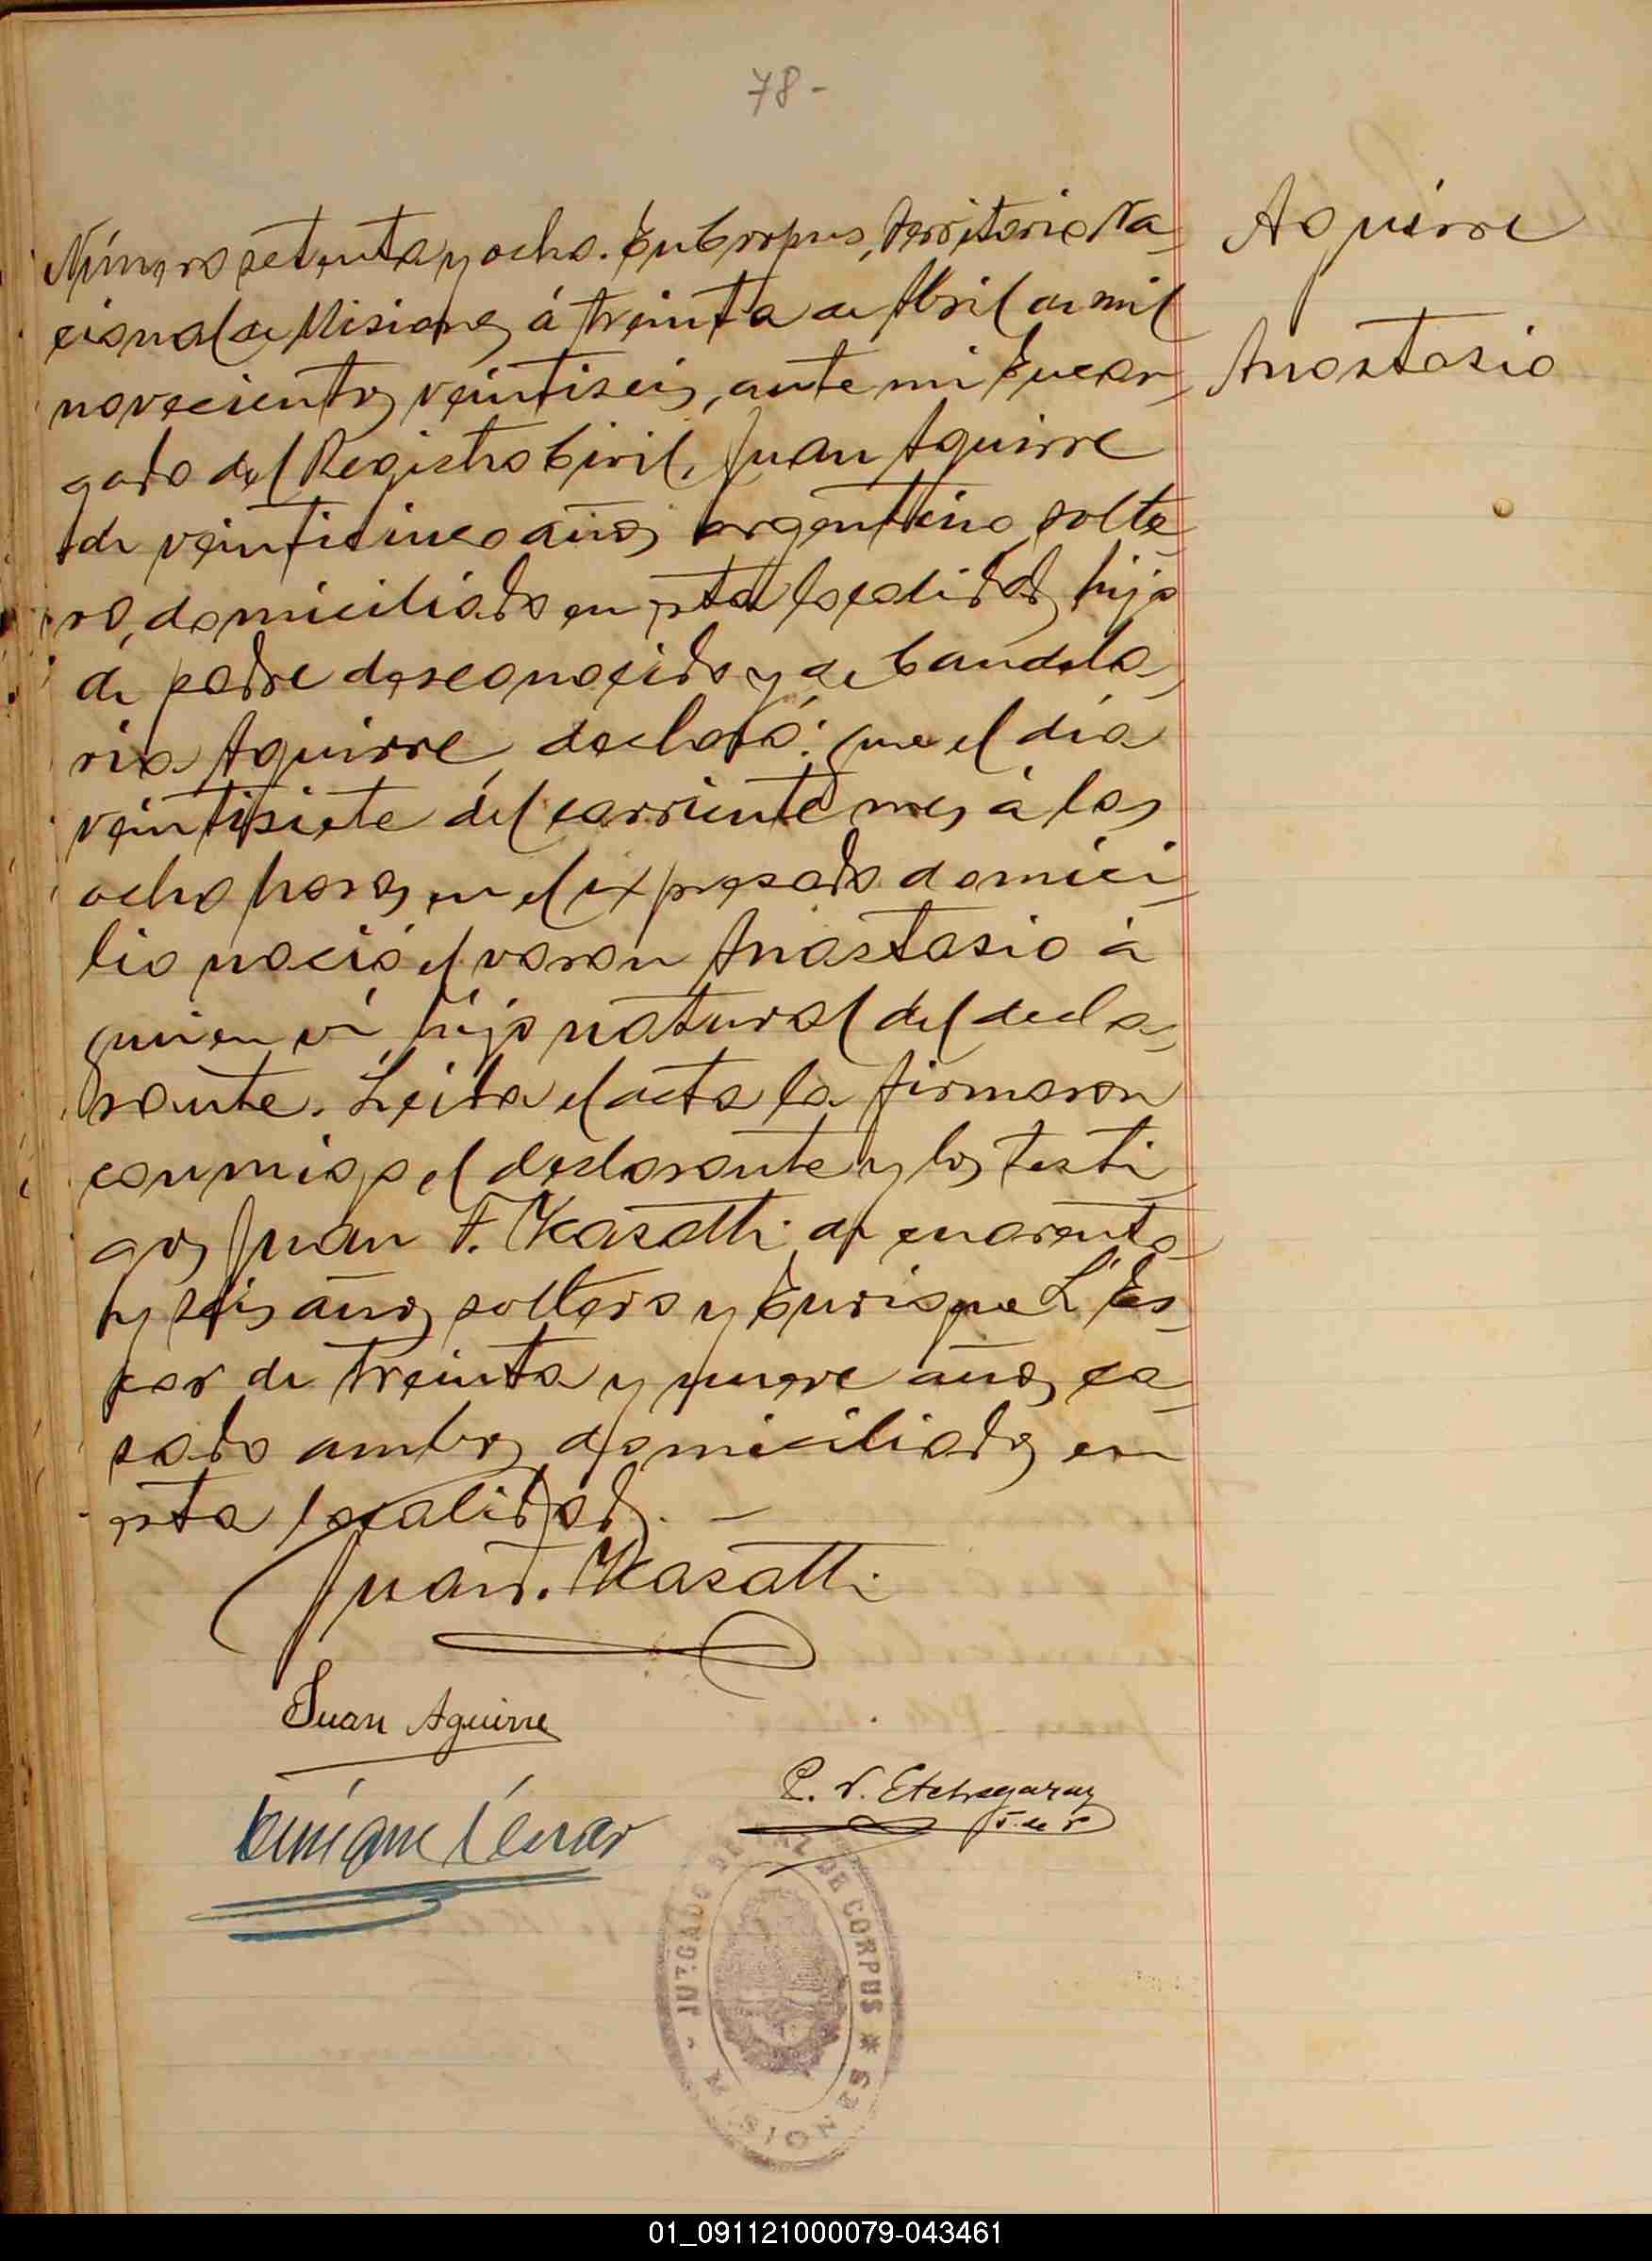 78-
Número setenta y ocho. En Corpus, Territorio Na-
cional de Misiones á treinta de Abril de mil
novecientos veintiseis, ante mi Encar-
gado del Registro Civil, Juan Aguirre
de veinticinco años argentino solte-
ro, domiciliado en esta localidad, hijo
de padre desconocido y de Candela-
ria Aguirre declaró: que el día
veintisiete del corriente mes á las
ocho horas en el expresado domici-
lio nació el varon Anastasio á
quien ví hijo natural del decla-
rante. Leida el acta la firmaron
conmigo el declarante y los testi-
gos Juan F. Kasatti de cuarenta
y seis años soltero y Enrique L'Es-
car de treinta y nueve años ca-
sado ambos domiciliados en
esta localidad. -
Aguirre
Anastasio
Juan F. Kasatti
Juan Aguirre
P. V. Etchegaray
J. de P
JUZGADO DE PAZ DE CORPUS * MISIONES -
01_091121000079-043461